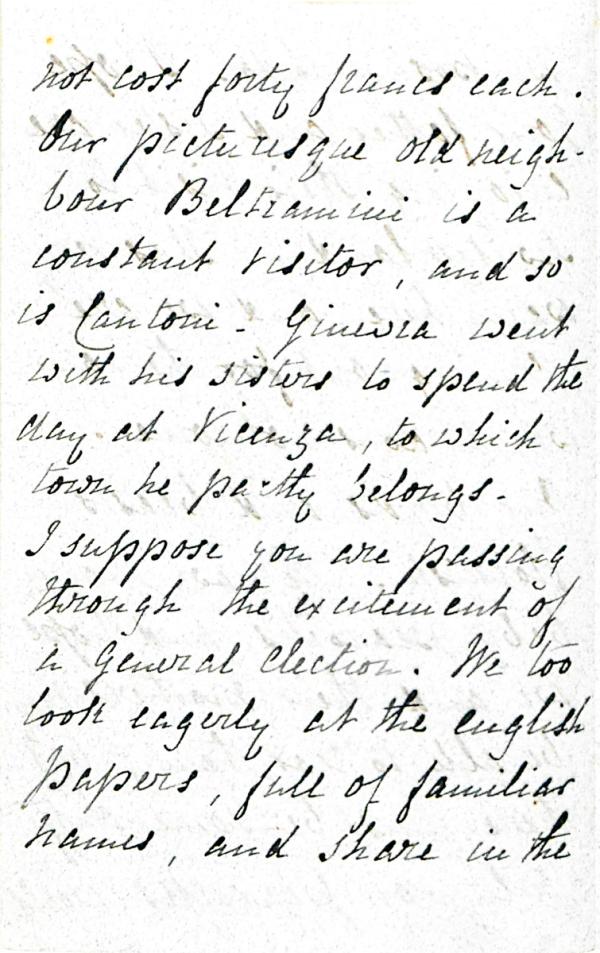 not cost forty francs each.
Our picturesque old neigh-
bour Beltramini is a
constant visitor, and so
is Cantoni - Ginevra went
with his sisters to spend the
day at Vicenza, to which
town he partly belongs.
I suppose you are passing
through the excitement of
a General Election. We too
look eagerly at the english
papers, full of familiar
names, and share in the